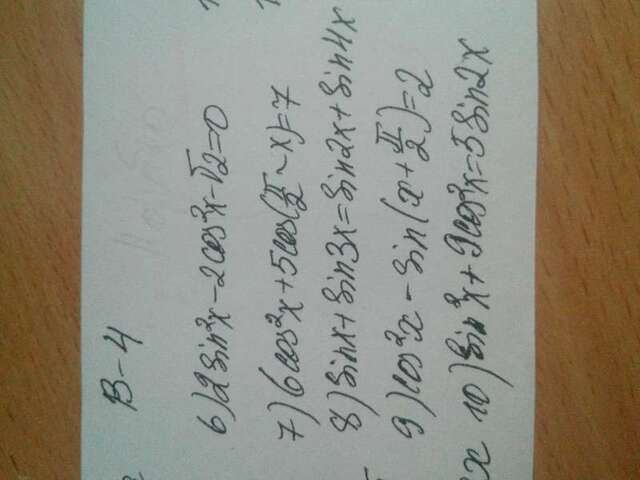 В-4
6) 2sin²x-2cos²x-√2=0
7) 6cos²x+5cos(π/2-x)=7
8) sinx+sin3x=sin2x+sin4x
9) cos²x-sin(x+π/2)=2
10) sin²x+9cos²x=5sin2x